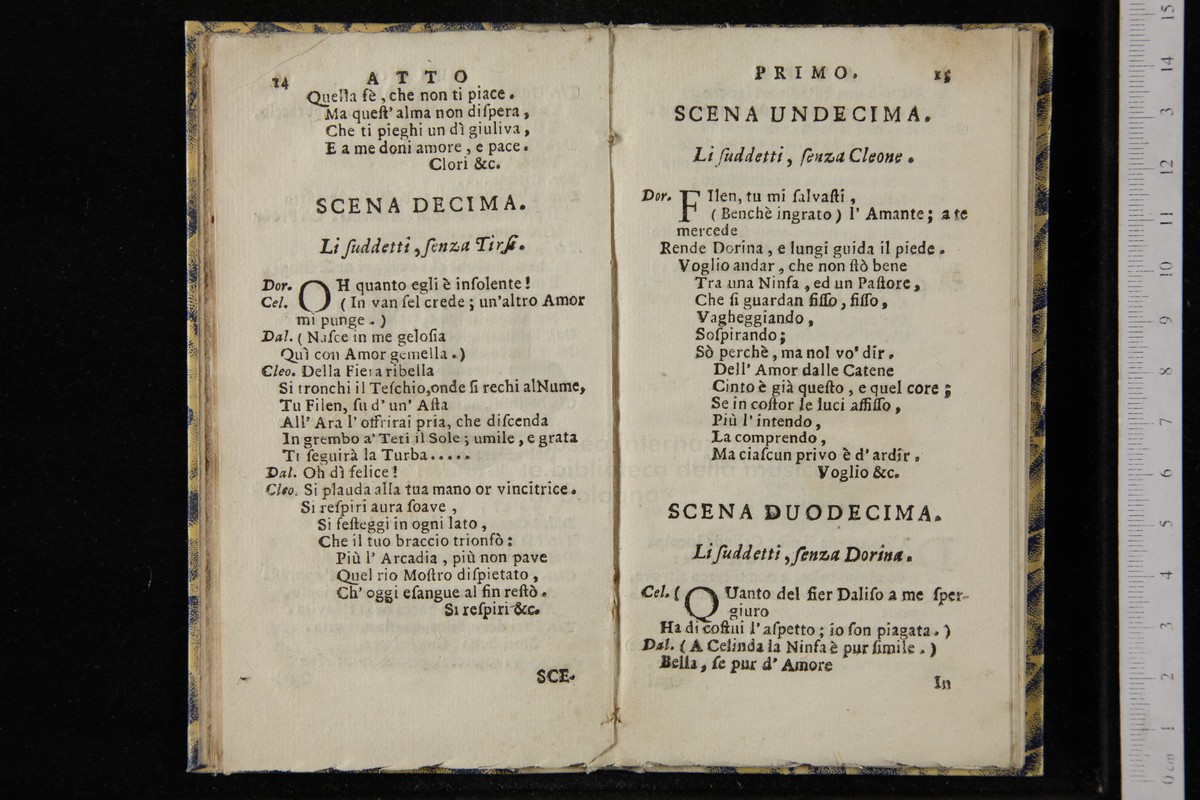 14 ATTO
Quella fè, che non ti piace.
Ma queſt' alma non diſpera,
Che ti pieghi un dì giuliva,
E a me doni amore, e pace.
Clori &c.
SCENA DECIMA.
Li ſuddetti, ſenza Tirſi.
Dor. OH quanto egli è inſolente!
Cel. (In van ſel crede; un'altro Amor
mi punge.)
Dal. (Naſce in me geloſia
Quì con Amor gemella.)
Cleo. Della Fiera ribella
Si tronchi il Teſchio, onde ſi rechi al Nume,
Tu Filen, ſu d' un' Aſta
All' Ara l' offrirai pria, che diſcenda
In grembo a' Teti il Sole; umile, e grata
Ti ſeguirà la Turba.....
Dal. Oh dì felice!
Cleo. Si plauda alla tua mano or vincitrice.
Si reſpiri aura ſoave,
Si feſteggi in ogni lato,
Che il tuo braccio trionfò:
Più l' Arcadia, più non pave
Quel rio Moſtro diſpietato,
Ch' oggi eſangue al fin reſtò.
Si reſpiri &c.
SCE-
PRIMO. 15
SCENA UNDECIMA.
Li ſuddetti, ſenza Cleone.
Dor. FIlen, tu mi ſalvaſti,
(Benchè ingrato) l' Amante; a te
mercede
Rende Dorina, e lungi guida il piede.
Voglio andar, che non ſtò bene
Tra una Ninfa, ed un Paſtore,
Che ſi guardan fiſſo, fiſſo,
Vagheggiando,
Soſpirando;
Sò perchè, ma nol vo' dir.
Dell' Amor dalle Catene
Cinto è già queſto, e quel core;
Se in coſtor le luci affiſſo,
Più l' intendo,
La comprendo,
Ma ciaſcun privo è d' ardir.
Voglio &c.
SCENA DUODECIMA.
Li ſuddetti, ſenza Dorina.
Cel. (QUanto del fier Daliſo a me ſper-
giuro
Ha di coſtui l' aſpetto; io ſon piagata.)
Dal. (A Celinda la Ninfa è pur ſimile.)
Bella, ſe pur d' Amore
In